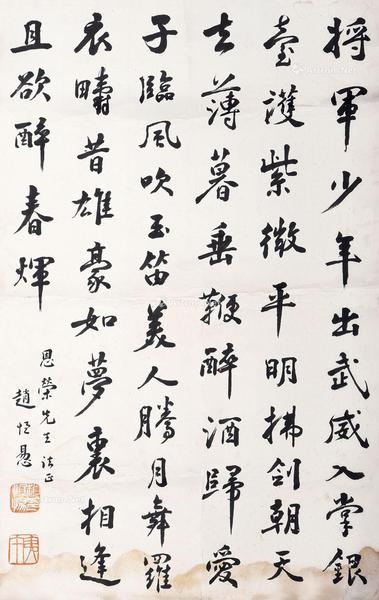 將軍少年出武威入掌銀
臺護紫微平明拂劍朝天
去薄暮垂鞭醉酒歸愛
子臨風吹玉笛美人騰月舞羅
衣疇昔雄豪如夢裏相逢
且欲醉春煇
恩榮先生法正
趙恒惖